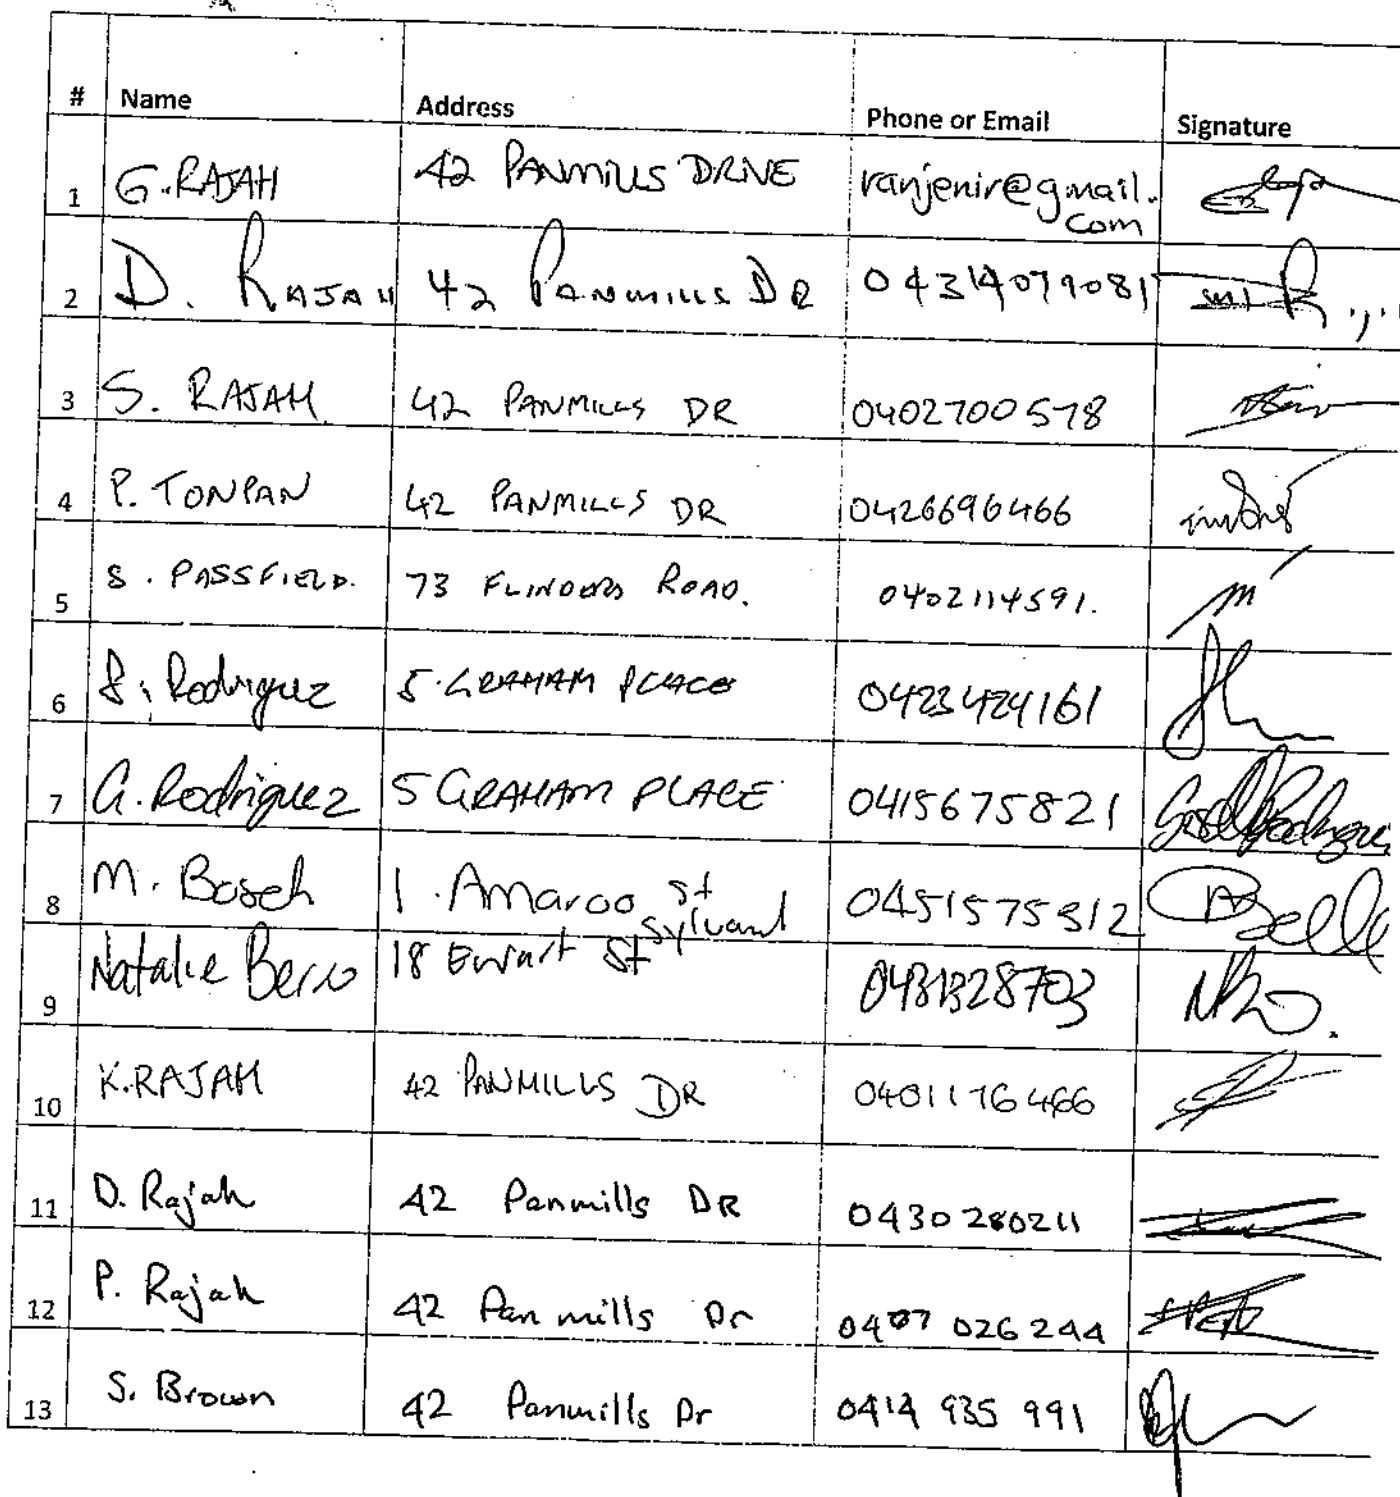 # Name Address Phone or Email Signature
1 G. RAJAH 42 PANMILLS DRIVE ranjenir@gmail.
com
2 D. RAJAH 42 PANMILLS DR
3 S. RAJAH 42 PANMILLS DR 0402700578
4 P. TONPAN 42 PANMILLS DR 0426696466
5 S. PASSFIELD. 73 FLINDERS ROAD. 0402114591.
6 S. Rodriguez 5 GRAHAM PLACE 0423424161
7 G. Rodriguez 5 GRAHAM PLACE 0415675821
8 M. Bosch 1 Amaroo St
Sylvand 0451575312
9 Natalie 18 Ewart St
10 K. RAJAH 42 PANMILLS DR 0401176466
11 D. Rajah 42 Panmills DR 0430280211
12 P. Rajah 42 Panmills Dr 0407 026 244
13 S. Brown 42 Panmills Dr 0414 935 991